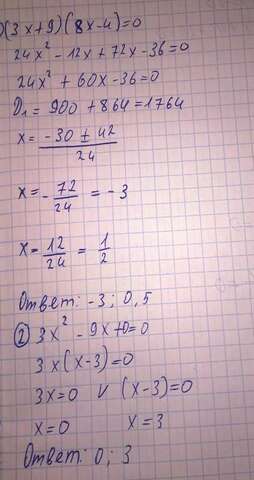 )(3x+9)(8x-4)=0
24x² - 12x + 72x - 36 = 0
24x² + 60x - 36 = 0
D₁ = 900 + 864 = 1764
x = (-30 ± 42)/24
x = -72/24 = -3
x = 12/24 = 1/2
Ответ: -3; 0,5
② 3x² - 9x + 0 = 0
3x(x-3)=0
3x=0 v (x-3)=0
x=0 x=3
Ответ: 0; 3